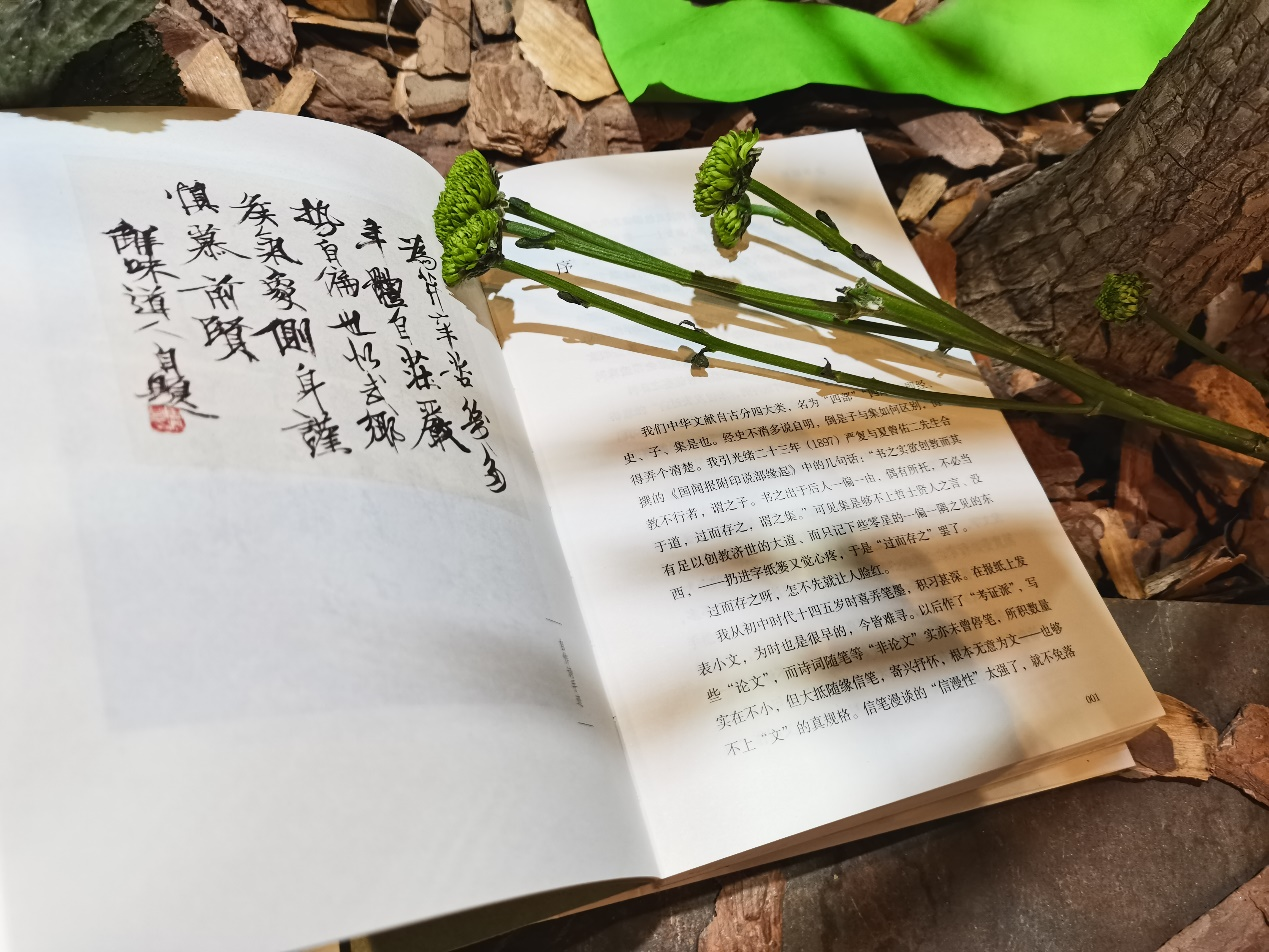 體自莊嚴
勢自 也似武鄉
侯氣象側身謹
慎慕前賢
解味道人自題
序
我们中华文献自古分四大类，名为“四部”，
史、子、集是也。经史不消多说自明，倒是子与集如何区别，
得弄个清楚。我引光绪二十三年（1897）严复与夏曾佑二先生合
撰的《国闻报附印说部缘起》中的几句话：“书之实欲创教而其
教不行者，谓之子。书之出于后人一偏一曲，偶有所托，不必当
于道，过而存之，谓之集。”可见集是够不上哲士贤人之言、没
有足以创教济世的大道、而只记下些零星的一偏一隅之见的东
西，——扔进字纸篓又觉心疼，于是“过而存之”罢了。
过而存之呀，怎不先就让人脸红。
我从初中时代十四五岁时喜弄笔墨，积习甚深。在报纸上发
表小文，为时也是很早的，今皆难寻。以后作了“考证派”，写
些“论文”，而诗词随笔等“非论文”实亦未曾停笔，所积数量
实在不小，但大抵随缘信笔，寄兴抒怀，根本无意为文——也够
不上“文”的真规格。信笔漫谈的“信漫性”太强了，就不免落
001